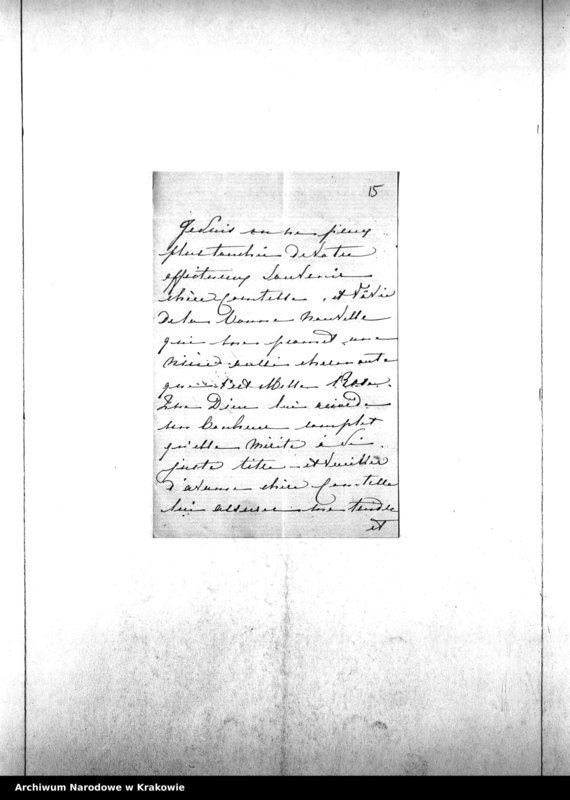 15
Je suis on ne peux
plus touchée de votre
affectueux Souvenir
chère Comtesse, et ravie
de la bonne nouvelle
qui me promet une
nièce aussi charmante
que Melle Rosa.
Dieu lui
un bonheur complet
qu'elle mérite à si
juste titre et veuillez
d'avance chère Comtesse
lui assurer ma tendre
et
Archiwum Narodowe w Krakowie